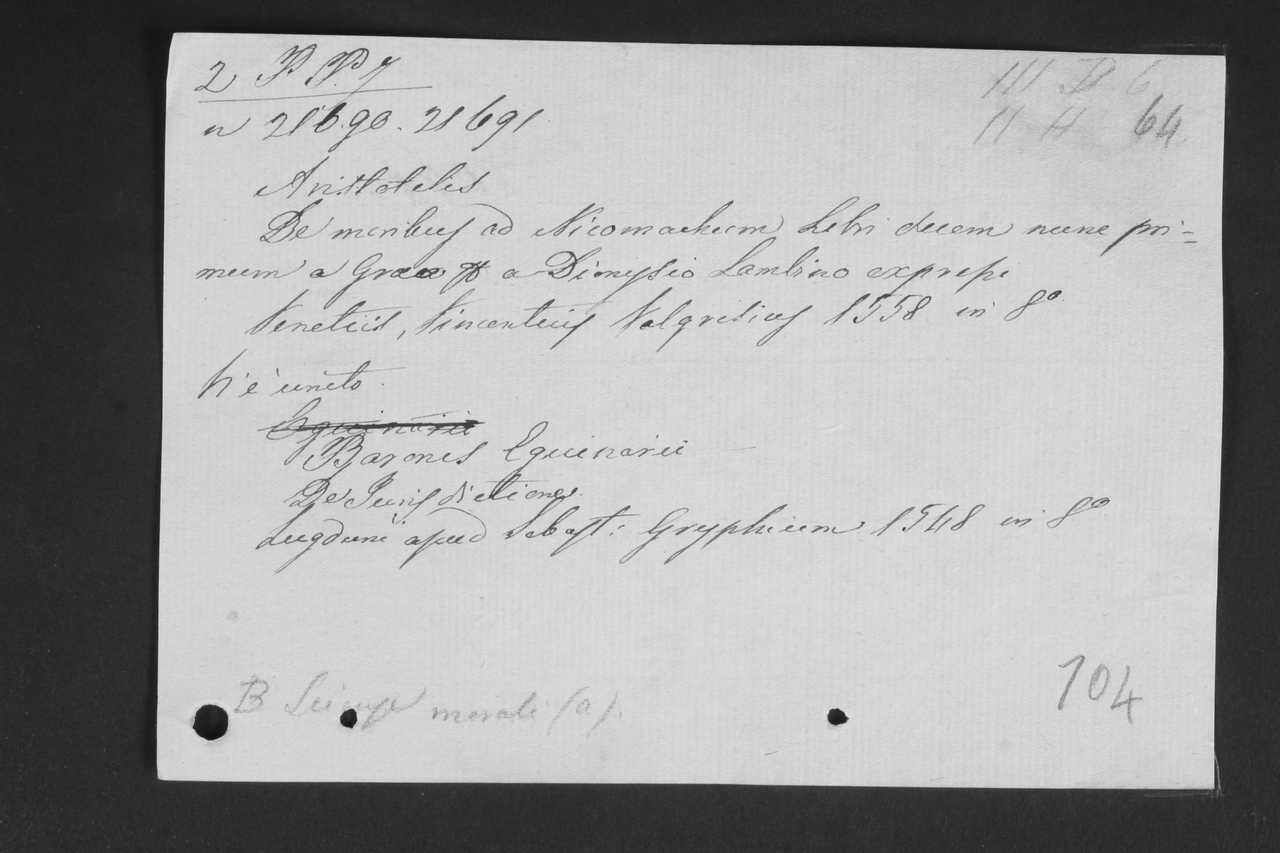 2 P. P. 7
III D 6
n 21690. 21691
II H 64
Aristotelis
De moribus ad Nicomachum Libri decem nunc pri=
mum a Graeco a Dionysio Lambino expressi
Venetiis, Vincentius Valgrisius 1558 in 8º
Vi è unito
Eguinarii
Baronis Eguinarii
De Jurisdictione
Lugduni apud Sebast: Gryphium 1548 in 8º
B Scienze morali (a).
104